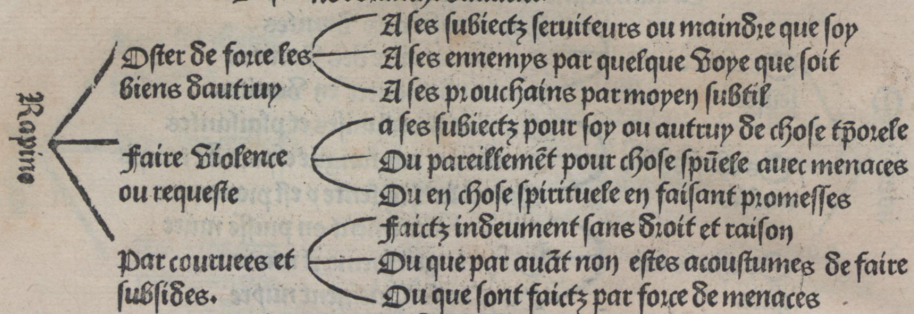 Rapine
Oster de force les
biens dautruy
A ses subiectz seruiteurs ou maindre que soy
A ses ennemys par quelque voye que soit
A ses prouchains par moyen subtil
faire violence
ou requeste
a ses subiectz pour soy ou autruy de chose tp̄orele
Ou pareillemēt pour chose spūele auec menaces
Ou en chose spirituele en faisant promesses
Par couruees et
subsides.
faictz indeument sans droit et raison
Ou que par auāt non estes acoustumes de faire
Ou que sont faictz par force de menaces